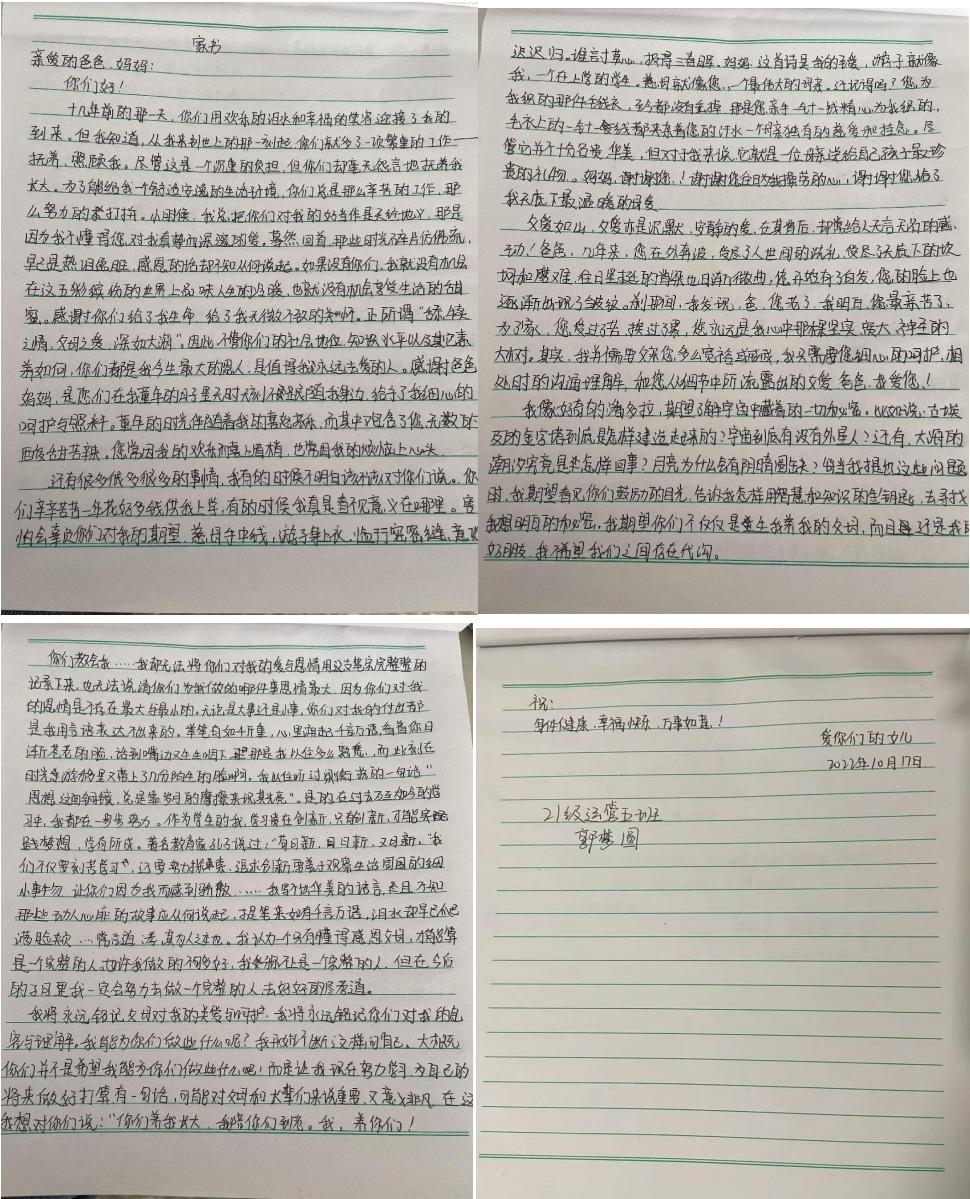 家书
亲爱的爸爸、妈妈:
你们好!
十几年前的那一天,你们用欢乐的泪水和幸福的笑容迎接了我的
到来。但我知道,从我来到世上的那一刻起,你们就多了一项繁重的工作——
抚养、照顾我。尽管这是一个沉重的负担,但你们却毫无怨言地抚养我
长大。为了能给我一个舒适安逸的生活环境,你们总是那么辛苦的工作,那
么努力的去打拼。小时候,我总把你们对我的好当作是天经地义,那是
因为我不懂得您对我真挚而深邃的爱。蓦然回首,那些时光碎片仿佛流,
早已是热泪盈眶,感恩的话却不知从何说起。如果没有你们,我就没有机会
在这五彩缤纷的世界上品味人生的冷暖,也就没有机会享受生活的甜
蜜。感谢你们给了我生命,给了我无微不致的关怀。正所谓"绵绵
之情,父母之爱,深如大海"因此,不管你们的社会地位,知识水平以及其它素
养如何,你们都是我今生最大的恩人,是值得我永远去爱的人。感谢爸爸
妈妈,是您们在我童年的日子里无时无刻不跟随我身边,给予了我细心的
呵护与照料。童年的时光伴随着我的喜怒哀乐,而其中包含了您无数的
酸甜苦辣。您常因我的欢乐而喜上眉梢,也常因我的烦恼上心头
还有很多很多很多的事情,我有的时候不明白该不该对你们说。你
们辛辛苦苦一年花好多钱供我上学,有的时候我真是看不见意义在哪里。害
怕会辜负你们对我的期望,慈母手中线,游子身上衣,临行密密缝,意恐
迟迟归。谁言寸草心,报得三春晖。妈妈,这首诗是我的至爱,游子就像
我,一个在上学的学生。慈母就像您,一个最伟大的母亲。还记得吗?您为
我织的那件毛线衣,至今都没有丢掉,那是您亲手一针一线精心为我织的,
毛衣上的一针一线都夹杂着您的汗水一何亲独有的慈爱和挂念。尽
管它并不十分名贵华美,但对于我来说,它就是一位母亲送给自己孩子最珍
贵的礼物。妈妈,谢谢您!谢谢您在日为我操劳的心,谢谢您给了
我天底下最温暖的母爱
父爱如山,父爱亦是沉默、安静的爱,在其背后,却常给人无言无名的感
动!爸爸,几年来,您在外奔波,受尽了人世间的洗礼,受尽了天底下的坎
坷和磨难,往日里挺的脊梁也日渐行微曲,您开始有了白发,您的脸上也
逐渐出现了皱纹。刹那间,我发现,爸,您老了,我明白,您最辛苦了,
为了家,您受过苦,挨过了累,您永远是我心中那棵坚实、庞大、神圣的
大树。其实,我并不需要父亲您多么富裕或成就,我只需要您细心的呵护,相
处时的沟通理解,和您从细节中所流露出的父爱。爸爸,我爱您!
我像好奇的潘多拉,期望了解宇宙中藏着的一切秘密。比如说:古埃
及的金字塔到底是怎样建造起来的?宇宙到底有没有外星人?还有,大海的
潮汐究竟是怎样回事?月亮为什么会有阴晴圆缺?每当我提机这些问题
时,我期望看见你们鼓励的目光,告诉我怎样用智慧和知识的金钥匙,去寻找
我想明白的秘密。我期望你们不仅仅是生我养我的父母,而且还是我的
好朋友,我不希望我们之间存在代沟。
你们教会我……我都无法将你们对我的爱与恩情用这支笔完完整整的
记录下来,也无法说清你们为我做的哪件事恩情最大,因为你们对我
的恩情是不存在最大与最小的。无论是大事还是小事,你们对我的付出若
是我用言语表达不出来的。拿笔有如千斤重,心里涌起千言万语,看着你日
渐苍老的脸,话到嘴边又生生咽下,那是我以往多么熟悉,而此刻在
时光悠游的锋里又带上了几分陌生的脸啊。我以往听过奥斯茜的一句话"
思想这面铜镜,总是靠岁月的摩擦来说其光亮"。是的在过去五年多的学
习中,我都在一步步努力。作为学生的我,学习贵在创新,只有创新,才能实现
践梦想,学有所成。著名教育家孔子说过:"苟日新,日日新,又日新。"我
们不仅要刻苦学习,还要努力探索,追求创新要善于观察生活周围的细
小事物,让你们因为我而感到骄傲……我写不出华美的语言,然且不知
那些动人心扉的故事应从何说起,提笔来如有千言万语,泪水却早已爬
满脸颊…常言道:孝,真为人之本也。我认为一个只有懂得感恩父母,才能算
是一个完整的人,也许我做的不够多好,我称不上是一个完整的人,但在今后
的子日里我一定会努力去做一个完整的人去好好的尽孝道。
我将永远铭记父母对我的关爱与呵护,我将永远铭记你们对我的包
容与理解。我能为你们做些什么呢?我时时不断这样问自己。大概
你们并不是希望我能为你们做些什么吧!而是让我现在努力学习,为自己的
将来做好打算有一句话,可能对父母和长辈们来说重要,又意义非凡,在这
我想对你们说:"你们养我长大,我陪你们到老。我,养你们!
祝:
身体健康、幸福快乐、万事如意!
爱你们的女儿
2022年10月17日
21级运管五班
郭梦圆